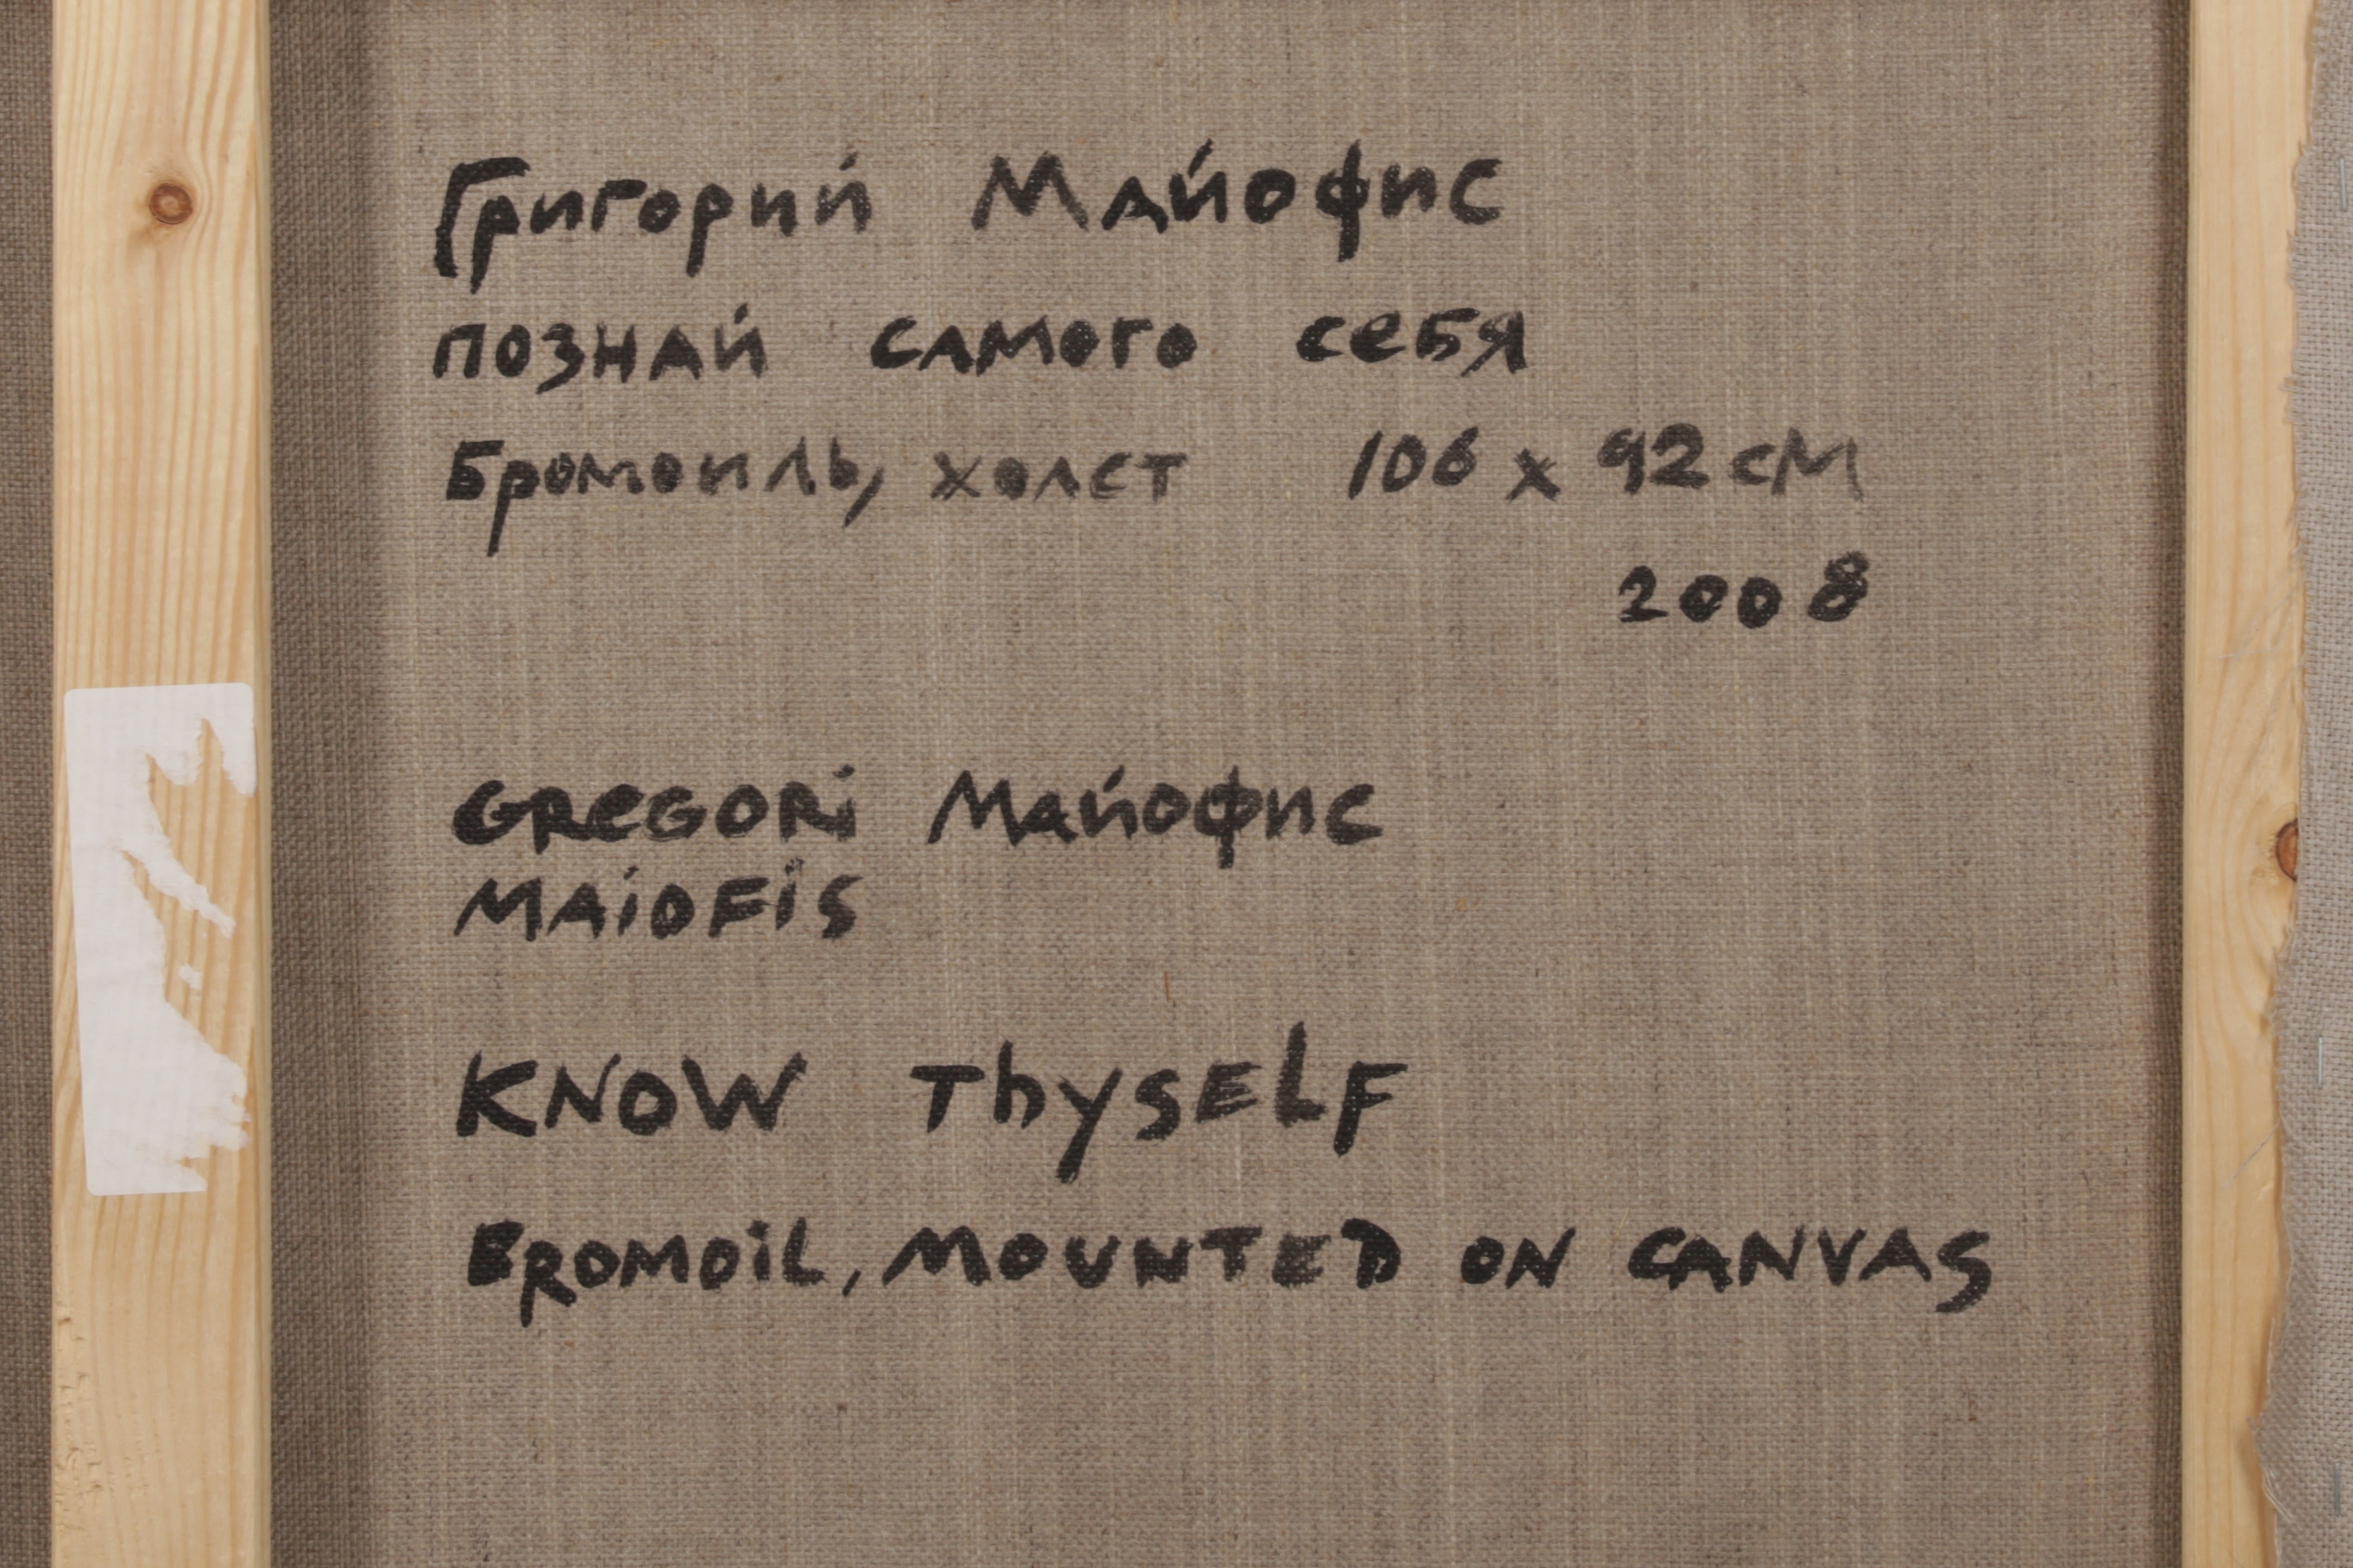 Григорий Майофис
познай самого себя
Бромоиль, холст 106 x 92 см
2008
GREGORi Майофис
MAiOFiS
KNOW ThySElF
BROMOiL, MOUNTED ON CANVAS